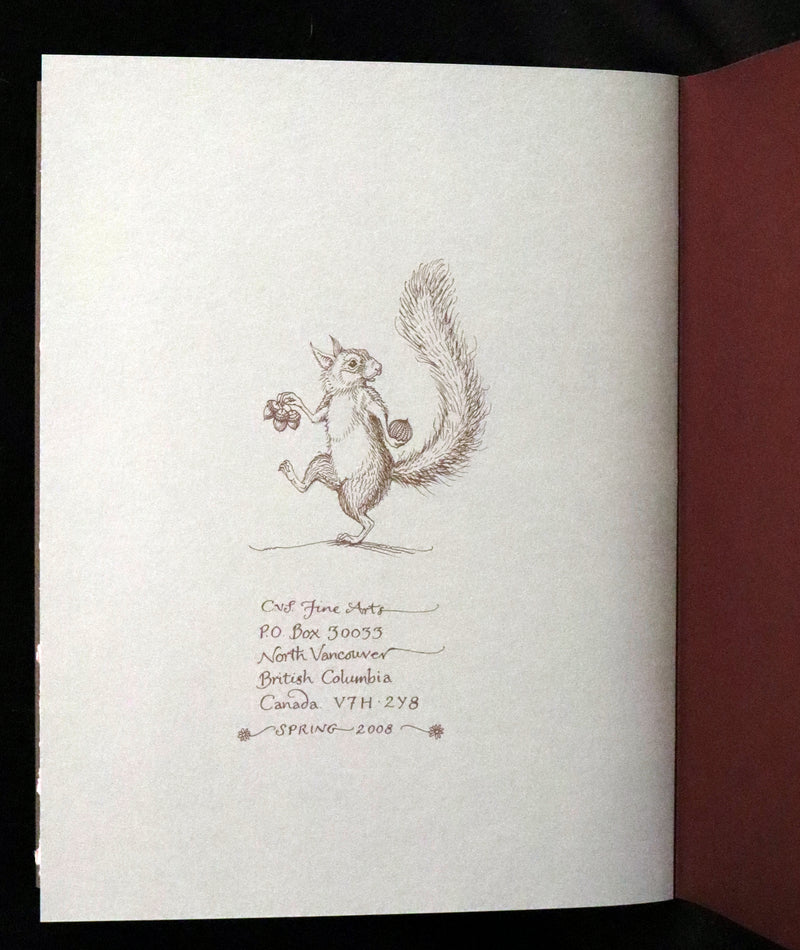 CvS. Fine Arts
P.O. Box 30033
North Vancouver
British Columbia
Canada V7H·2Y8
SPRING 2008